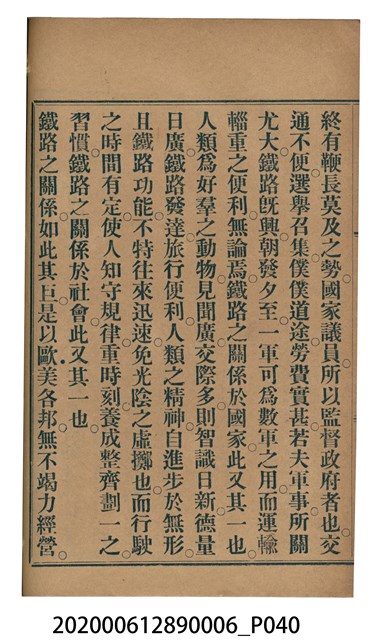 終有鞭長莫及之勢。國家議員所以監督政府者也。交
通不便。選舉召集。僕僕道途。勞費實甚。若夫軍事所關
尤大。鐵路既興。朝發夕至。一軍可爲數軍之用。而運輸
輜重之便利無論焉。鐵路之關係於國家。此又其一也。
人類爲好羣之動物。見聞廣。交際多。則智識日新。德量
日廣。鐵路發達。旅行便利。人類之精神。自進步於無形。
且鐵路功能。不特往來迅速。免光陰之虛擲也。而行駛
之時間有定。使人知守規律。重時刻。養成整齊劃一之
習慣。鐵路之關係於社會。此又其一也。
鐵路之關係。如此其巨。是以歐美各邦。無不竭力經營。
202000612890006_P040